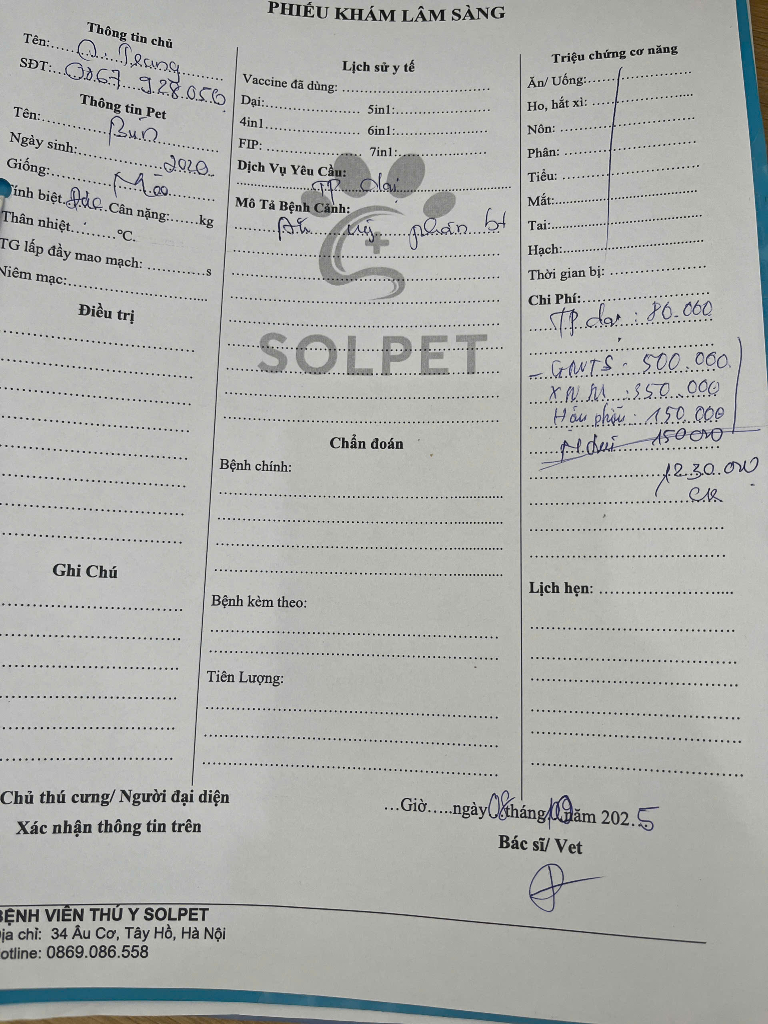 PHIẾU KHÁM LÂM SÀNG
Thông tin chủ
Tên:.....O. Trang
SĐT:...0867 928.056
Thông tin Pet
Tên:.....Bún
Ngày sinh:.....2020
Giống:.....Mèo
ính biệt.Đực.Cân nặng:......kg
Thân nhiệt..........°C.
TG lấp đầy mao mạch: ............s
Niêm mạc:............
Điều trị
Ghi Chú
Lịch sử y tế
Vaccine đã dùng: ............
Dại:............ 5in1:............
4in1............ 6in1:............
FIP: ............ 7in1:............
Dịch Vụ Yêu Cầu:
TP dại
Mô Tả Bệnh Cảnh:
Ăn phân bt
SOLPET
Chẩn đoán
Bệnh chính:
Bệnh kèm theo:
Tiên Lượng:
Triệu chứng cơ năng
Ăn/ Uống:............
Ho, hắt xì: ............
Nôn: ............
Phân: ............
Tiểu: ............
Mắt:............
Tai:............
Hạch:............
Thời gian bị: ............
Chi Phí:............
TP dại : 80.000
- GMTS - 500.000
XNM : 350.000
Hậu phẫu : 150.000
150000
1230.000
CK
Lịch hẹn: ............
Chủ thú cưng/ Người đại diện
Xác nhận thông tin trên
...Giờ.....ngày 08 tháng 09 năm 2025
Bác sĩ/ Vet
BỆNH VIÊN THÚ Y SOLPET
ịa chỉ: 34 Âu Cơ, Tây Hồ, Hà Nội
otline: 0869.086.558